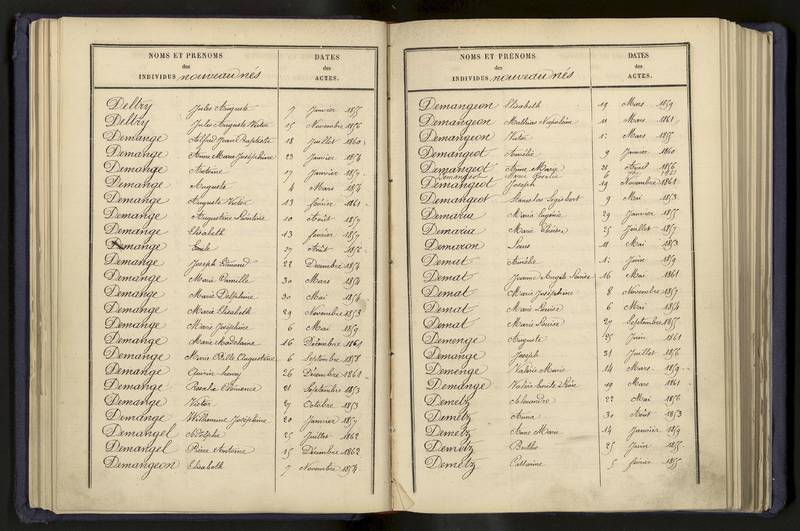 NOMS ET PRÉNOMS
des
INDIVIDUS nouveau nés
DATES
des
ACTES.
Delbry Jules Auguste 7 Janvier 1855
Delbry Jules Auguste Victor 15 Novembre 1856
Demange Alfred Jean Baptiste 18 Juillet 1860
Demange Anne Marie Joséphine 23 Janvier 1854
Demange Antoine 17 Janvier 1857
Demange Auguste 4 Mars 1856
Demange Auguste Victor 13 février 1861
Demange Augustine 10 Août 1857
Demange Elisabeth 13 février 1857
Demange Emile 27 Août 1856
Demange Joseph Edmond 22 Décembre 1854
Demange Marie Camille 30 Mars 1854
Demange Marie Delphine 30 Mai 1854
Demange Marie Elisabeth 29 Novembre 1853
Demange Marie Joséphine 6 Mai 1859
Demange Marie Madelaine 16 Décembre 1861
Demange Marie Augustine 6 Septembre 1858
Demange 26 Décembre 1861
Demange 21 Septembre 1853
Demange Victor 27 Octobre 1853
Demange Joséphine 20 Janvier 1857
Demangel Adolphe 25 Juillet 1862
Demangel Pierre Antoine 15 Décembre 1862
Demangeon Elisabeth 7 Novembre 1854
NOMS ET PRÉNOMS
des
INDIVIDUS nouveau nés
DATES
des
ACTES.
Demangeon Elisabeth 19 Mars 1859
Demangeon Mathias Napoléon 11 Mars 1861
Demangeon Victor Mars 1855
Demangeot Amélie 9 Janvier 1860
Demangeot Anne Marie 21 Avril 1856
Demangeot Marie
Demangeot Joseph 19 Novembre 1861
Demangeot Stanislas Sigisbert 9 Mai 1853
Demaria Marie Eugénie 29 Janvier 1855
Demaria Marie Thérèse 25 Juillet 1857
Demaxon Louis 11 Mai 1853
Demat Amélie Juin 1859
Demat Jeanne Angèle Louise 16 Mai 1861
Demat Marie Joséphine 8 Novembre 1857
Demat Marie Louise 6 Mai 1854
Demat Marie Louise 27 Septembre 1855
Demenge Auguste 25 Juin 1861
Demange Joseph 31 Juillet 1856
Demenge Valérie Marie 14 Mars 1859
Demange 19 Mars 1861
Demetz Alexandre 22 Mai 1856
Demetz Anna 30 Août 1853
Demetz Anne Marie 14 Janvier 1859
Demetz 25 Juin 1855
Demetz Catherine 5 février 1855